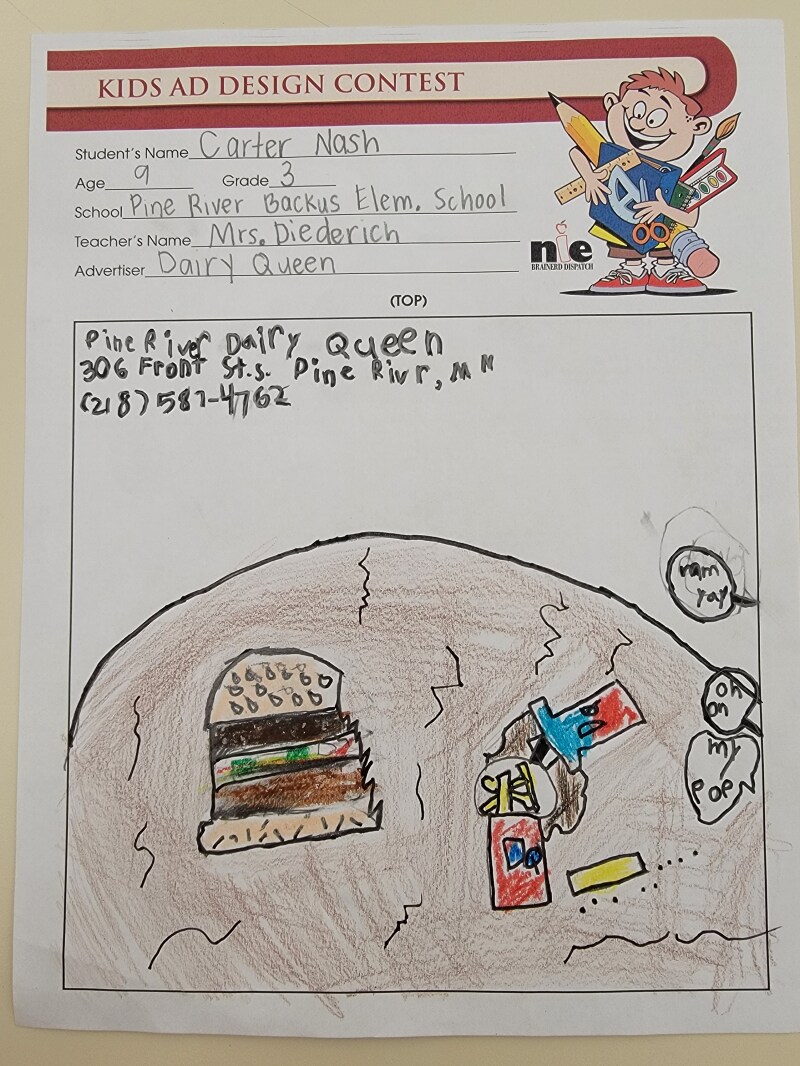 KIDS AD DESIGN CONTEST
Student's Name Carter Nash
Age 9 Grade 3
School Pine River Backus Elem. School
Teacher's Name Mrs. Diederich
Advertiser Dairy Queen
nie
BRAINERD DISPATCH
(TOP)
Pine River Dairy Queen
306 Front St.s. Pine Rivr, MN
(218) 587-4762
yay
oh
on
my
pop
DQ